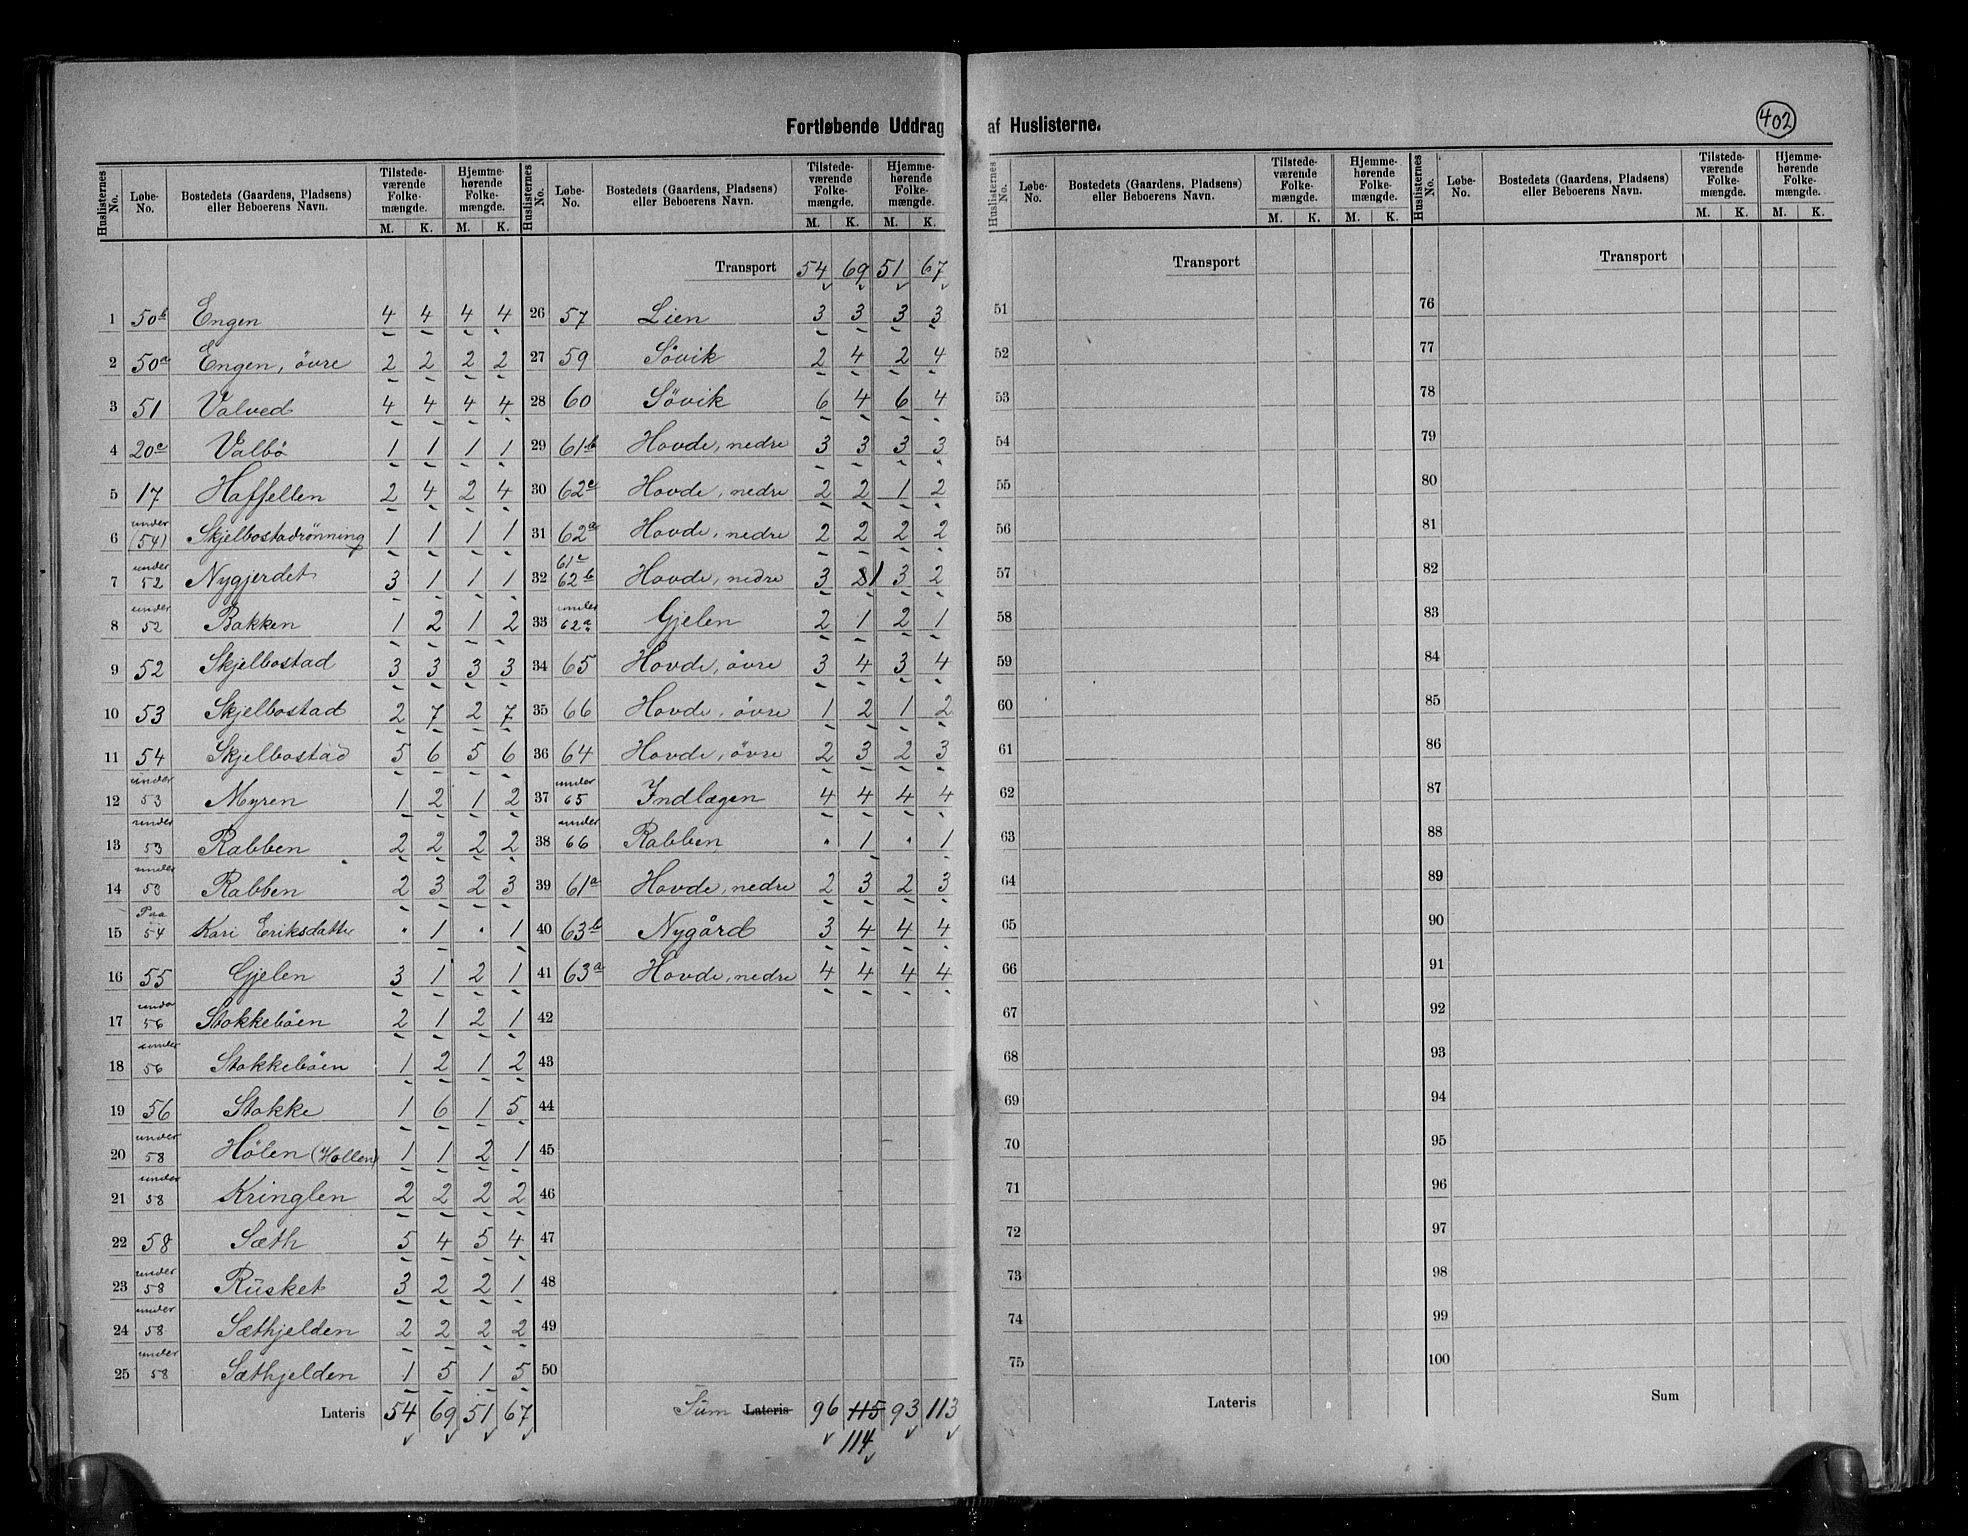 Fortløbende Uddrag af Huslisterne.
402
Huslisternes No. Løbe-No. Bostedets (Gaardens, Pladsens) eller Beboerens Navn. Tilstedeværende Folkemængde. M. K. Hjemmehørende Folkemængde. M. K.
1 50b Engen 4 4 4 4
2 50a Engen, övre 2 2 2 2
3 51 Valved 4 4 4 4
4 20c Valbö 1 1 1 1
5 17 Haffellen 2 4 2 4
6 under (54) Skjelbostadrönning 1 1 1 1
7 under 52 Nygjerdet 3 1 1 1
8 under 52 Bakken 1 2 1 2
9 52 Skjelbostad 3 3 3 3
10 53 Skjelbostad 2 7 2 7
11 54 Skjelbostad 5 6 5 6
12 under 53 Myren 1 2 1 2
13 under 53 Rabben 2 2 2 2
14 under 53 Rabben 2 3 2 3
15 Paa 54 Kari Eriksdatter · 1 · 1
16 55 Gjelen 3 1 2 1
17 under 56 Stokkeböen 2 1 2 1
18 under 56 Stokkeböen 1 2 1 2
19 56 Stokke 1 6 1 5
20 under 58 Hölen (Hollen) 1 1 2 1
21 under 58 Kringlen 2 2 2 2
22 58 Sæth 5 4 5 4
23 under 58 Rusket 3 2 2 1
24 under 58 Sæthjelden 2 2 2 2
25 under 58 Sæthjelden 1 5 1 5
Lateris 54 69 51 67
Huslisternes No. Løbe-No. Bostedets (Gaardens, Pladsens) eller Beboerens Navn. Tilstedeværende Folkemængde. M. K. Hjemmehørende Folkemængde. M. K.
Transport 54 69 51 67
26 57 Lien 3 3 3 3
27 59 Sövik 2 4 2 4
28 60 Sövik 6 4 6 4
29 61b Hovde, nedre 3 3 3 3
30 62c Hovde, nedre 2 2 1 2
31 62a Hovde, nedre 2 2 2 2
32 61c 62b Hovde, nedre 3 2 1 3 2
33 under 62a Gjelen 2 1 2 1
34 65 Hovde, övre 3 4 3 4
35 66 Hovde, övre 1 2 1 2
36 64 Hovde, övre 2 3 2 3
37 under 65 Indlægen 4 4 4 4
38 under 66 Rabben · 1 · 1
39 61a Hovde, nedre 2 3 2 3
40 63b Nygård 3 4 4 4
41 63a Hovde, nedre 4 4 4 4
42
43
44
45
46
47
48
49
50
Sum Lateris 96 115 93 113
114
Huslisternes No. Løbe-No. Bostedets (Gaardens, Pladsens) eller Beboerens Navn. Tilstedeværende Folkemængde. M. K. Hjemmehørende Folkemængde. M. K.
Transport
51
52
53
54
55
56
57
58
59
60
61
62
63
64
65
66
67
68
69
70
71
72
73
74
75
Lateris
Huslisternes No. Løbe-No. Bostedets (Gaardens, Pladsens) eller Beboerens Navn. Tilstedeværende Folkemængde. M. K. Hjemmehørende Folkemængde. M. K.
Transport
76
77
78
79
80
81
82
83
84
85
86
87
88
89
90
91
92
93
94
95
96
97
98
99
100
Sum